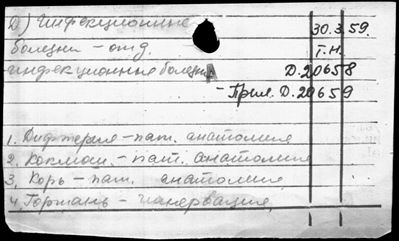 Д) Инфекционные 30.3.59.
болезни – отд. Т.Н.
инфекционные болезни Д.20658
– Прил. Д.20659
1. Дифтерия – пат. анатомия
2. Коклюш – пат. анатомия
3. Корь – пат. анатомия
4. Гортань – иннервация